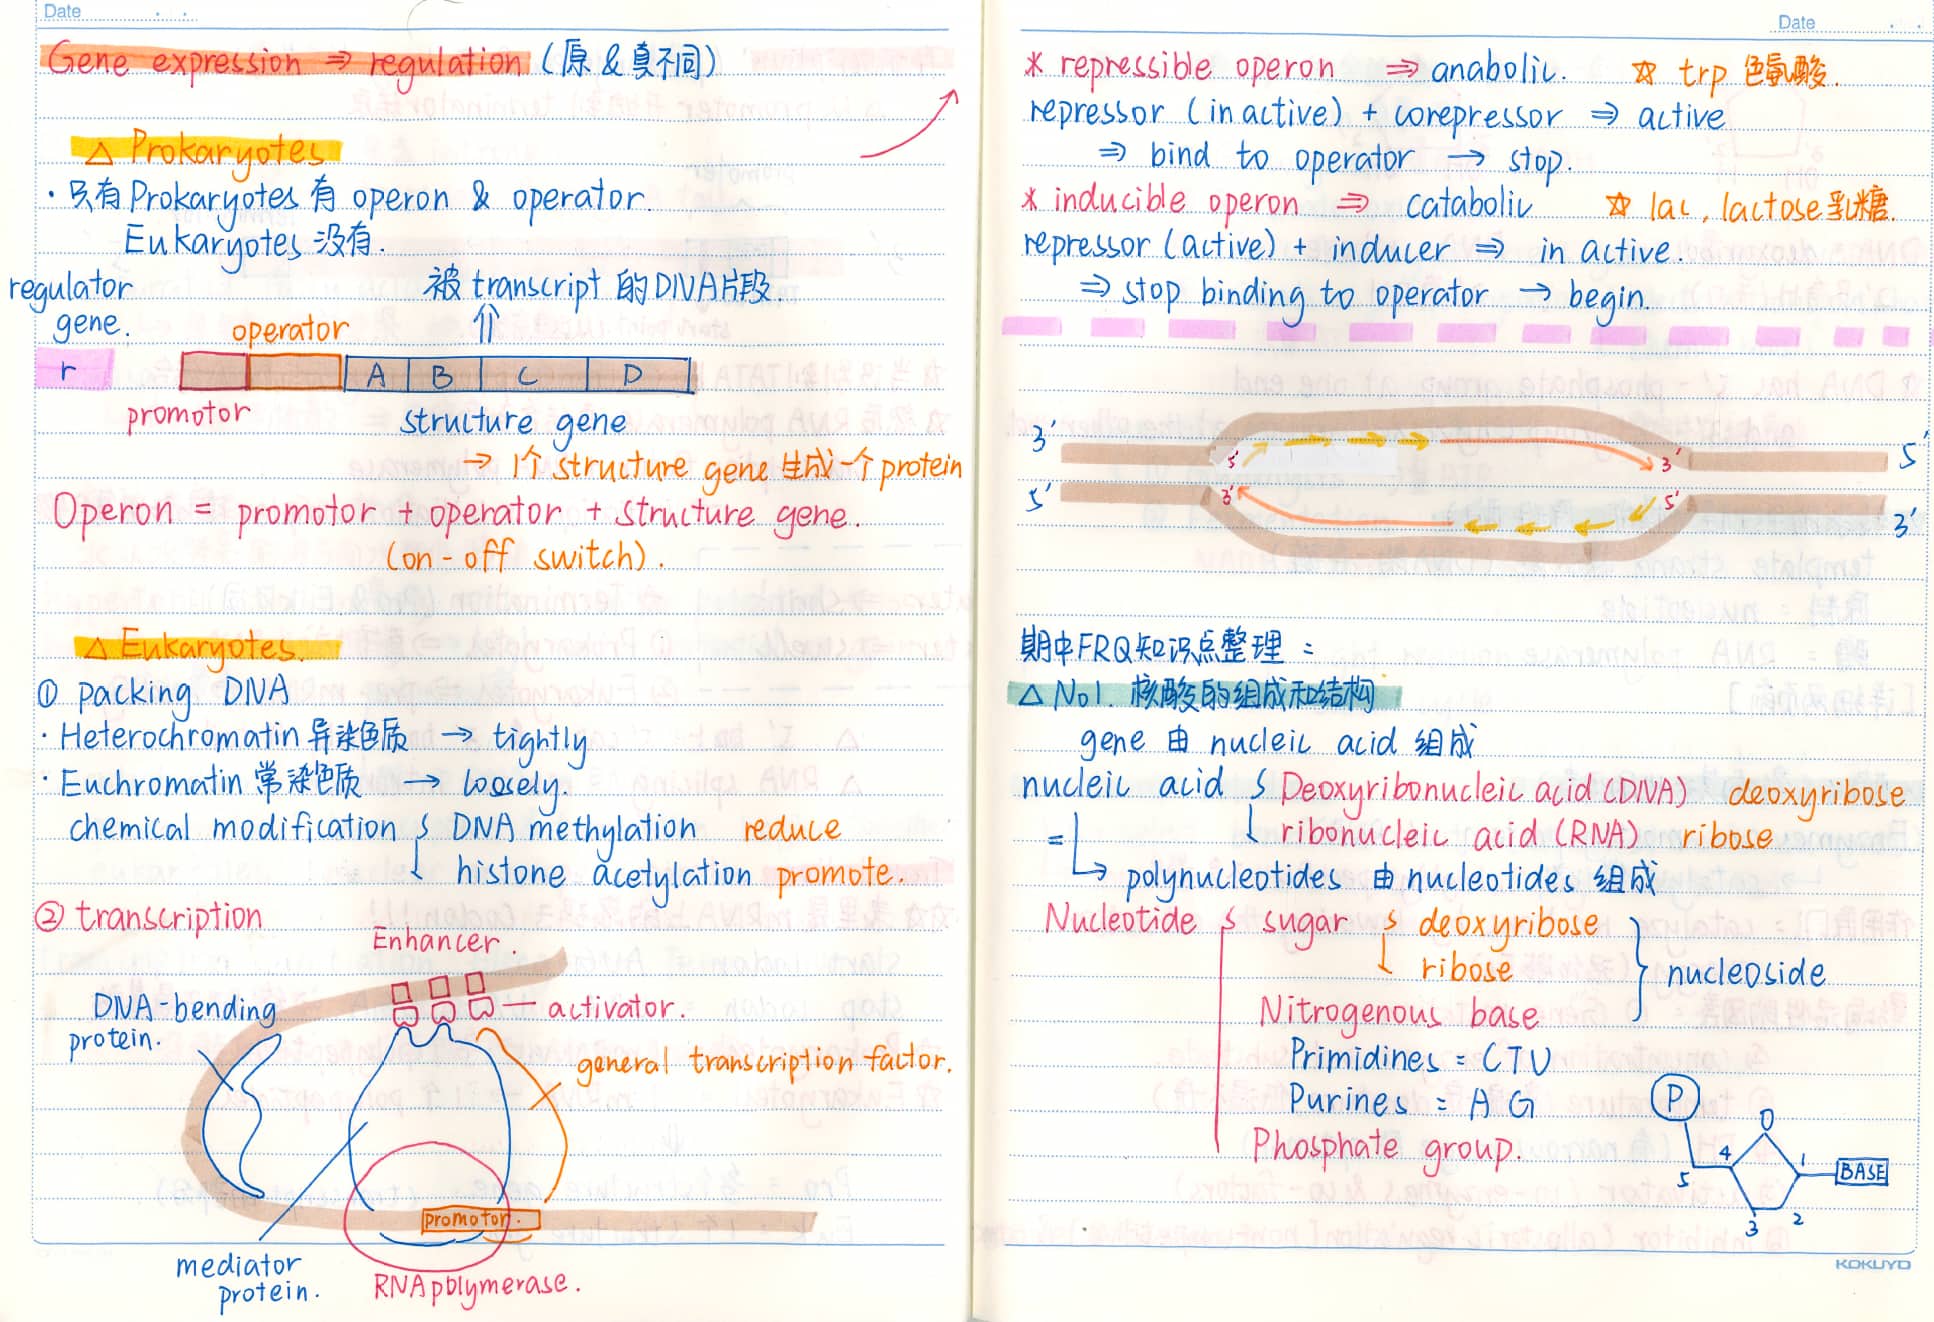 Date
Gene expression ⇒ regulation (原&真不同)
△ Prokaryotes
· 只有Prokaryotes 有 operon & operator.
Eukaryotes 没有.
regulator
gene.
被 transcript 的DNA片段.
operator
r
A B C D
promotor
structure gene
→ 1个 structure gene 生成一个 protein
Operon = promotor + operator + structure gene.
(on-off switch).
△ Eukaryotes.
① packing DNA
· Heterochromatin 异染色质 → tightly
· Euchromatin 常染色质 → loosely.
chemical modification { DNA methylation reduce
histone acetylation promote.
② transcription
Enhancer.
DNA-bending
protein.
activator.
general transcription factor.
promotor.
mediator
protein.
RNA polymerase.
Date
* repressible operon ⇒ anabolic. ☆ trp 色氨酸.
repressor (inactive) + corepressor ⇒ active
⇒ bind to operator → stop.
* inducible operon ⇒ catabolic ☆ lac, lactose乳糖.
repressor (active) + inducer ⇒ in active.
⇒ stop binding to operator → begin.
3' 5'
5' 3'
3' 5'
5' 3'
期中FRQ知识点整理:
△ No1. 核酸的组成和结构
gene 由 nucleic acid 组成
nucleic acid { Deoxyribonucleic acid (DNA) deoxyribose
= ribonucleic acid (RNA) ribose
→ polynucleotides 由 nucleotides 组成
Nucleotide { sugar { deoxyribose
ribose
} nucleoside
Nitrogenous base
Primidines = CTU
Purines = A G
Phosphate group.
P
O
4 1
BASE
5
3 2
KOKUYO